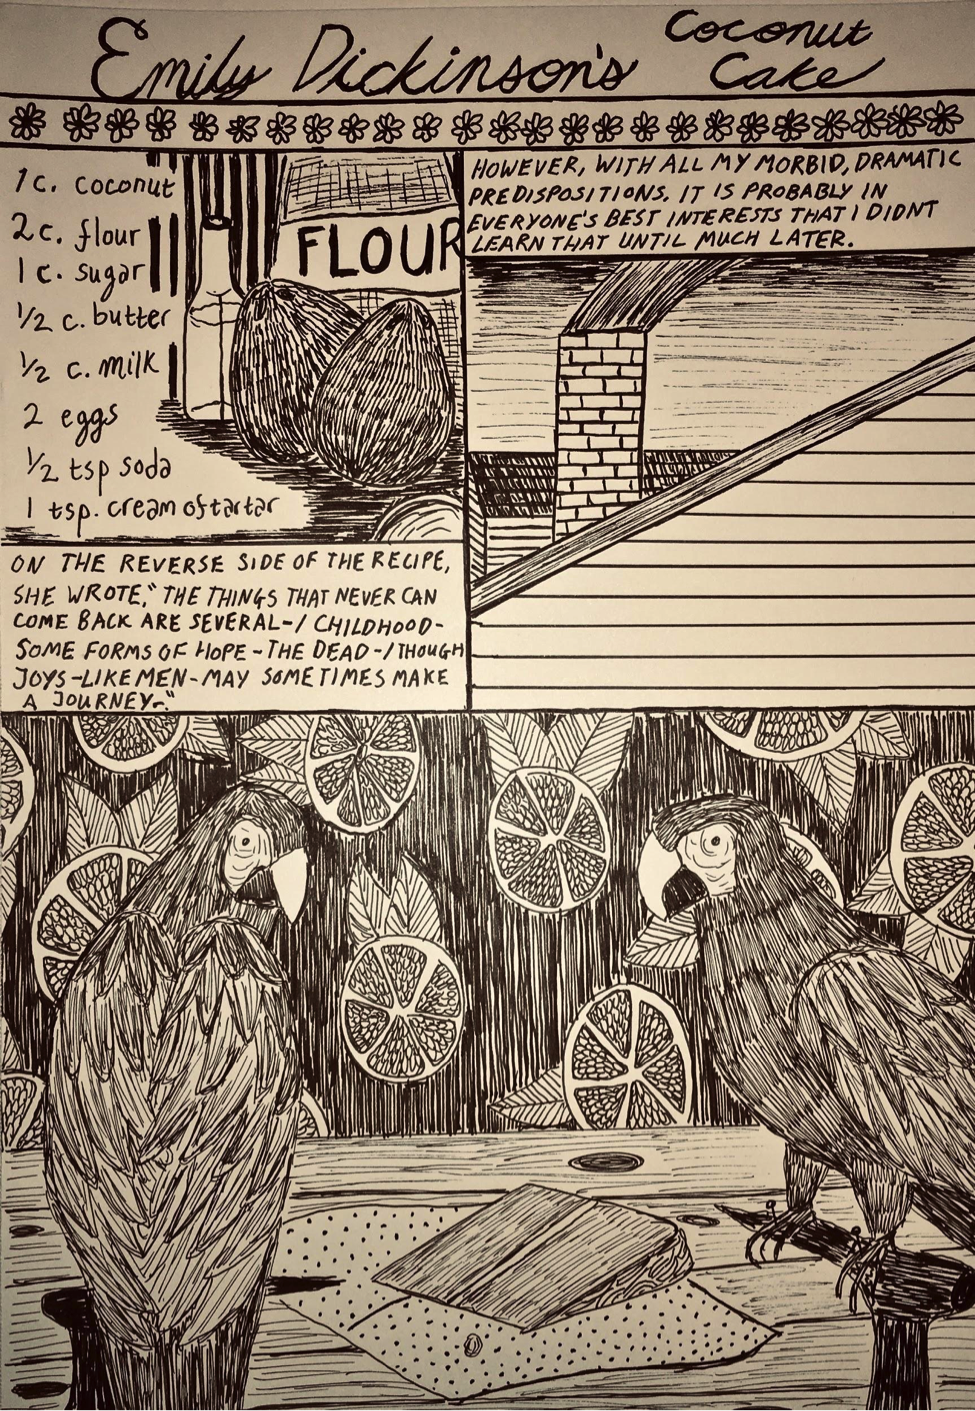 Emily Dickinson's Coconut
Cake
1 c. coconut
2 c. flour
1 c. sugar
1/2 c. butter
1/2 c. milk
2 eggs
1/2 tsp soda
1 tsp. cream of tartar
FLOUR
ON THE REVERSE SIDE OF THE RECIPE,
SHE WROTE, "THE THINGS THAT NEVER CAN
COME BACK ARE SEVERAL-/ CHILDHOOD-
SOME FORMS OF HOPE - THE DEAD -/ THOUGH
JOYS-LIKE MEN-MAY SOMETIMES MAKE
A JOURNEY-."
HOWEVER, WITH ALL MY MORBID, DRAMATIC
PREDISPOSITIONS, IT IS PROBABLY IN
EVERYONE'S BEST INTERESTS THAT I DIDNT
LEARN THAT UNTIL MUCH LATER.